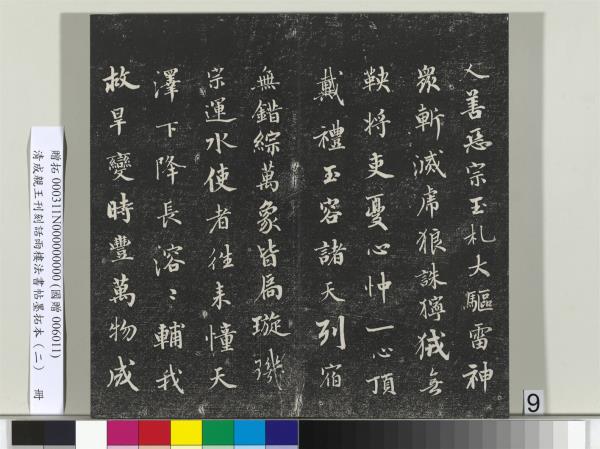 人善惡宗玉札大驅雷神
眾斬滅虎狼誅獰狨無
鞅將吏憂心忡一心頂
戴禮玉容諸天列宿
無錯綜萬象皆局璇璣
宗運水使者往來憧天
澤下降長溶〻輔我
救旱變時豐萬物成
贈拓 000311N000000000 (國贈 006011)
清成親王刊刻話雨樓法書帖墨拓本（二） 冊
9